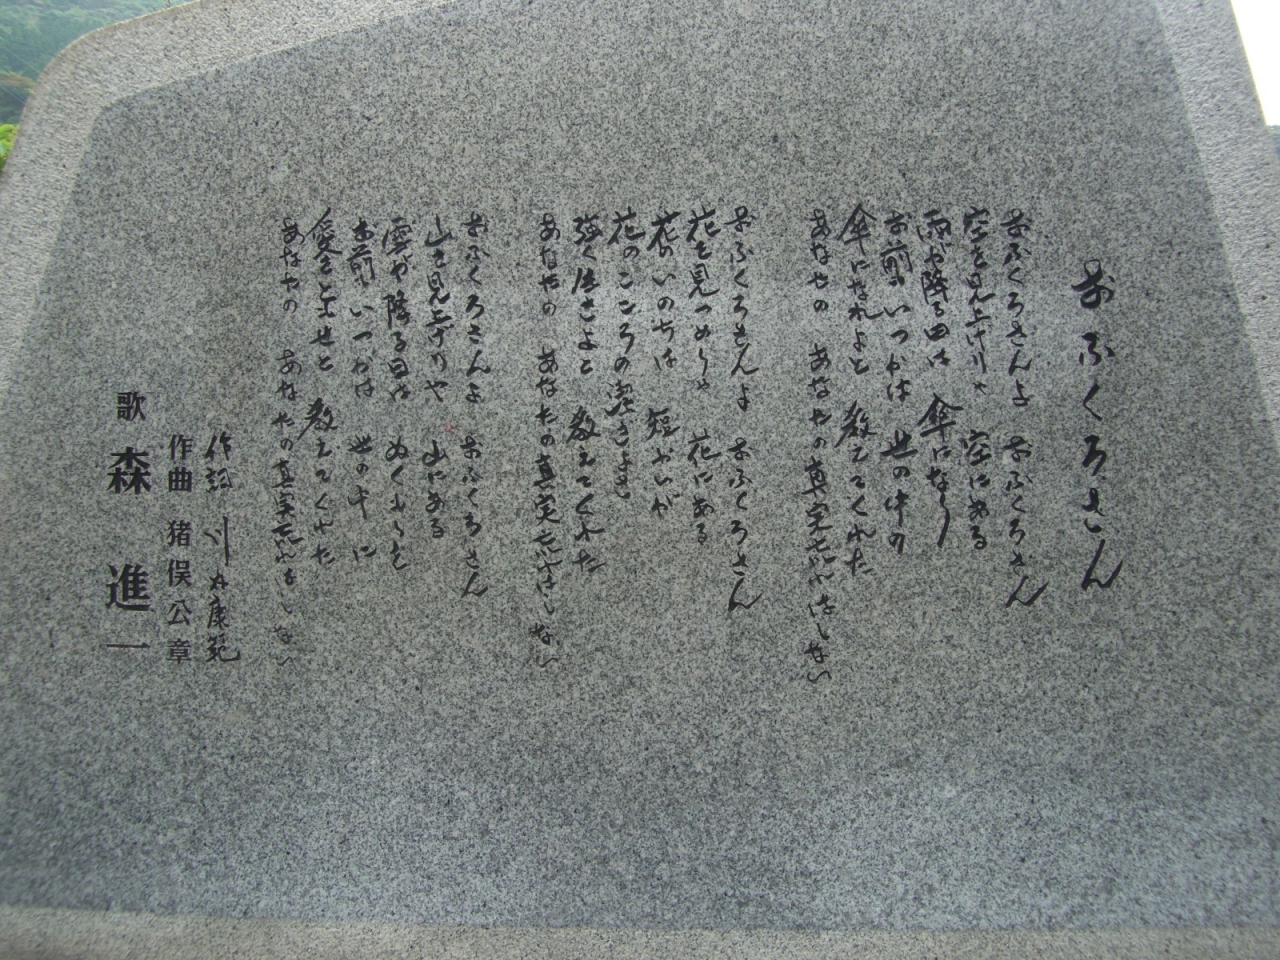 おふくろさん
おふくろさんよ おふくろさん
空を見上げりゃ 空にある
雨が降る日は 傘になり
お前もいつかは 世の中の
傘になれよと 教えてくれた
あなたの あなたの真実 忘れはしない
おふくろさんよ おふくろさん
花を見つめりゃ 花にある
花のいのちは 短いが
花のこころの 潔さ
強く生きよと 教えてくれた
あなたの あなたの真実 忘れはしない
おふくろさんよ おふくろさん
山を見上げりゃ 山にある
雪が降る日は ぬくもりを
お前もいつかは 世の中に
愛をともせと 教えてくれた
あなたの あなたの真実 忘れはしない
作詞 川内康範
作曲 猪俣公章
歌 森 進一